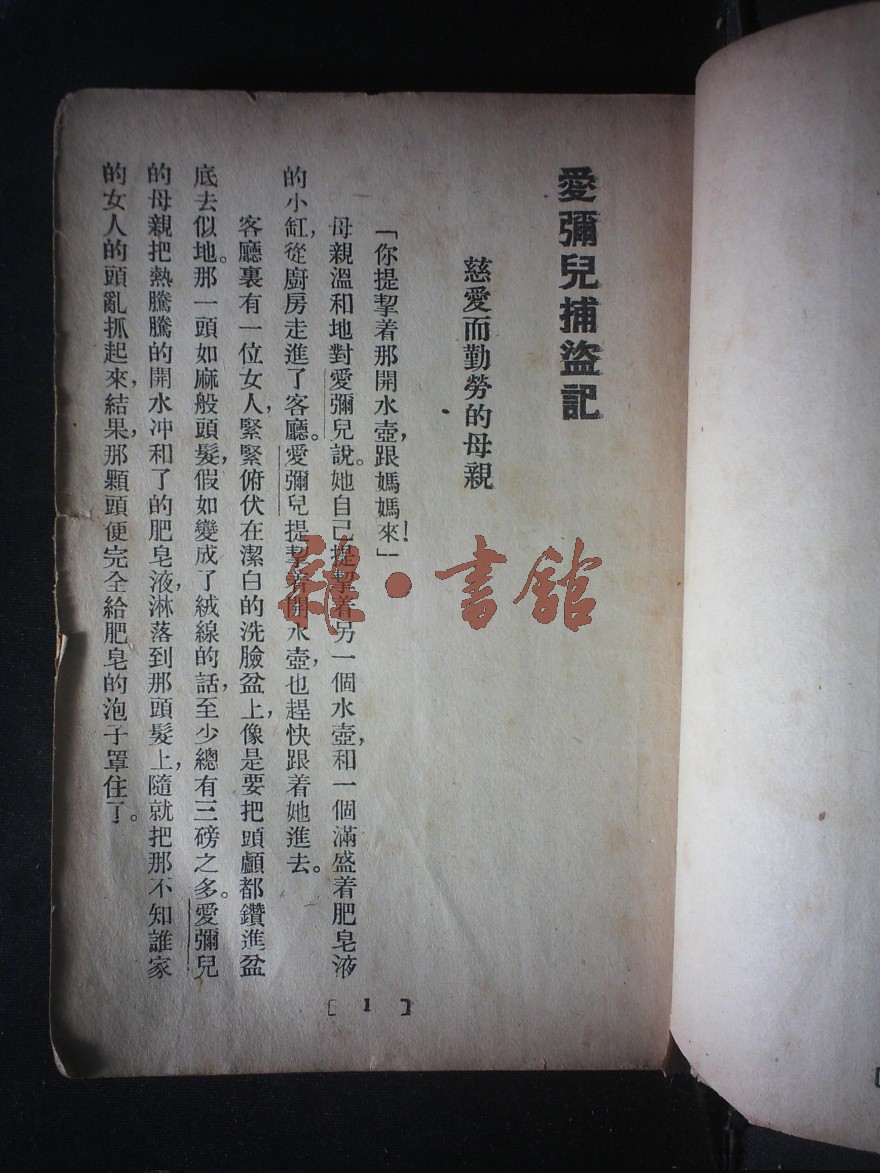 愛彌兒捕盜記
慈愛而勤勞的母親
「你提挈着那開水壺，跟媽媽來！」
母親溫和地對愛彌兒說。她自己提挈着另一個水壺，和一個滿盛着肥皂液
的小缸，從廚房走進了客廳。愛彌兒提挈着開水壺，也趕快跟着她進去。
客廳裏有一位女人，緊緊俯伏在潔白的洗臉盆上，像是要把頭顱都鑽進盆
底去似地。那一頭如麻般頭髮，假如變成了絨線的話，至少總有三磅之多。愛彌兒
的母親把熱騰騰的開水冲和了的肥皂液，淋落到那頭髮上，隨就把那不知誰家
的女人的頭亂抓起來，結果，那顆頭便完全給肥皂的泡子罩住了。
[1]
雜·書館